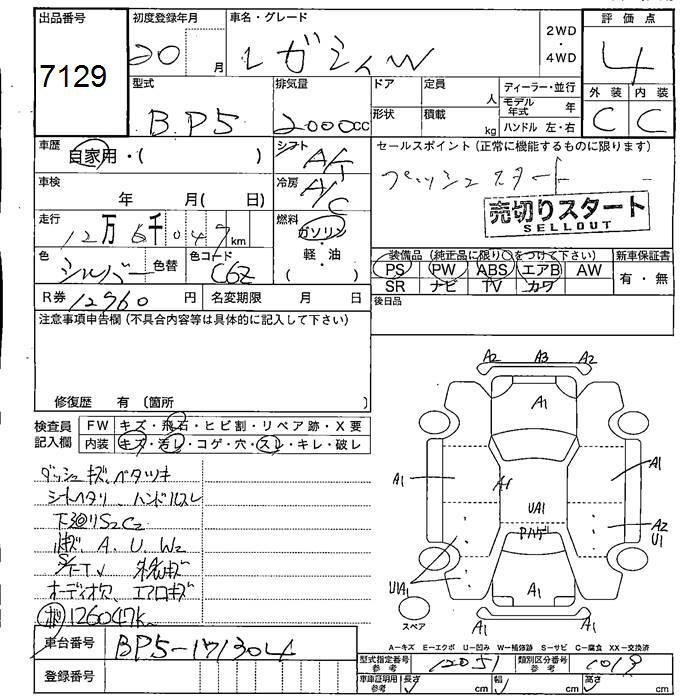 出品番号 初度登録年月 車名・グレード 2WD・4WD 評価点
7129 20 月 レガシィW 4
型式 排気量 ドア 定員 人 ディーラー・並行 外装 内装
BP5 2000cc 形状 積載 kg モデル年式 年 C C
ハンドル 左・右
車歴 自家用・( ) シフト A/T セールスポイント (正常に機能するものに限ります)
車検 年 月( 日) 冷房 A/C プッシュスタート
売切りスタート
SELLOUT
走行 12万6千047km 燃料 ガソリン・軽・油 ( )
色 シルバー 色替 色コード C6Z
装備品 (純正品に限り○をつけて下さい) 新車保証書
PS PW ABS エアB AW 有・無
SR ナビ TV カワ
R券 12960 円 名変期限 月 日
後日品
注意事項申告欄 (不具合内容等は具体的に記入して下さい)
修復歴 有 (箇所 )
検査員記入欄 FW キズ・飛石・ヒビ割・リペア跡・X要
内装 キズ・汚レ・コゲ・穴・スレ・キレ・破レ
ダッシュキズ、ベタツキ
シートヘタリ、ハンドルスレ
下廻りS2C2
A、U、W2
オーディオ穴、エアロキズ
126047k
A2 A3 A2
A1
A1 A1 A1
UA1 A2
U1
Pハゲ
UA1 A1
スペア
A1 A1
A−キズ E−エクボ U−凹み W−補修跡 S−サビ C−腐食 XX−交換済
車台番号 BP5-171304
型式指定番号 参考 12051 類別区分番号 参考 1019
登録番号
車庫証明用 参考 長さ cm 幅 cm 高さ cm